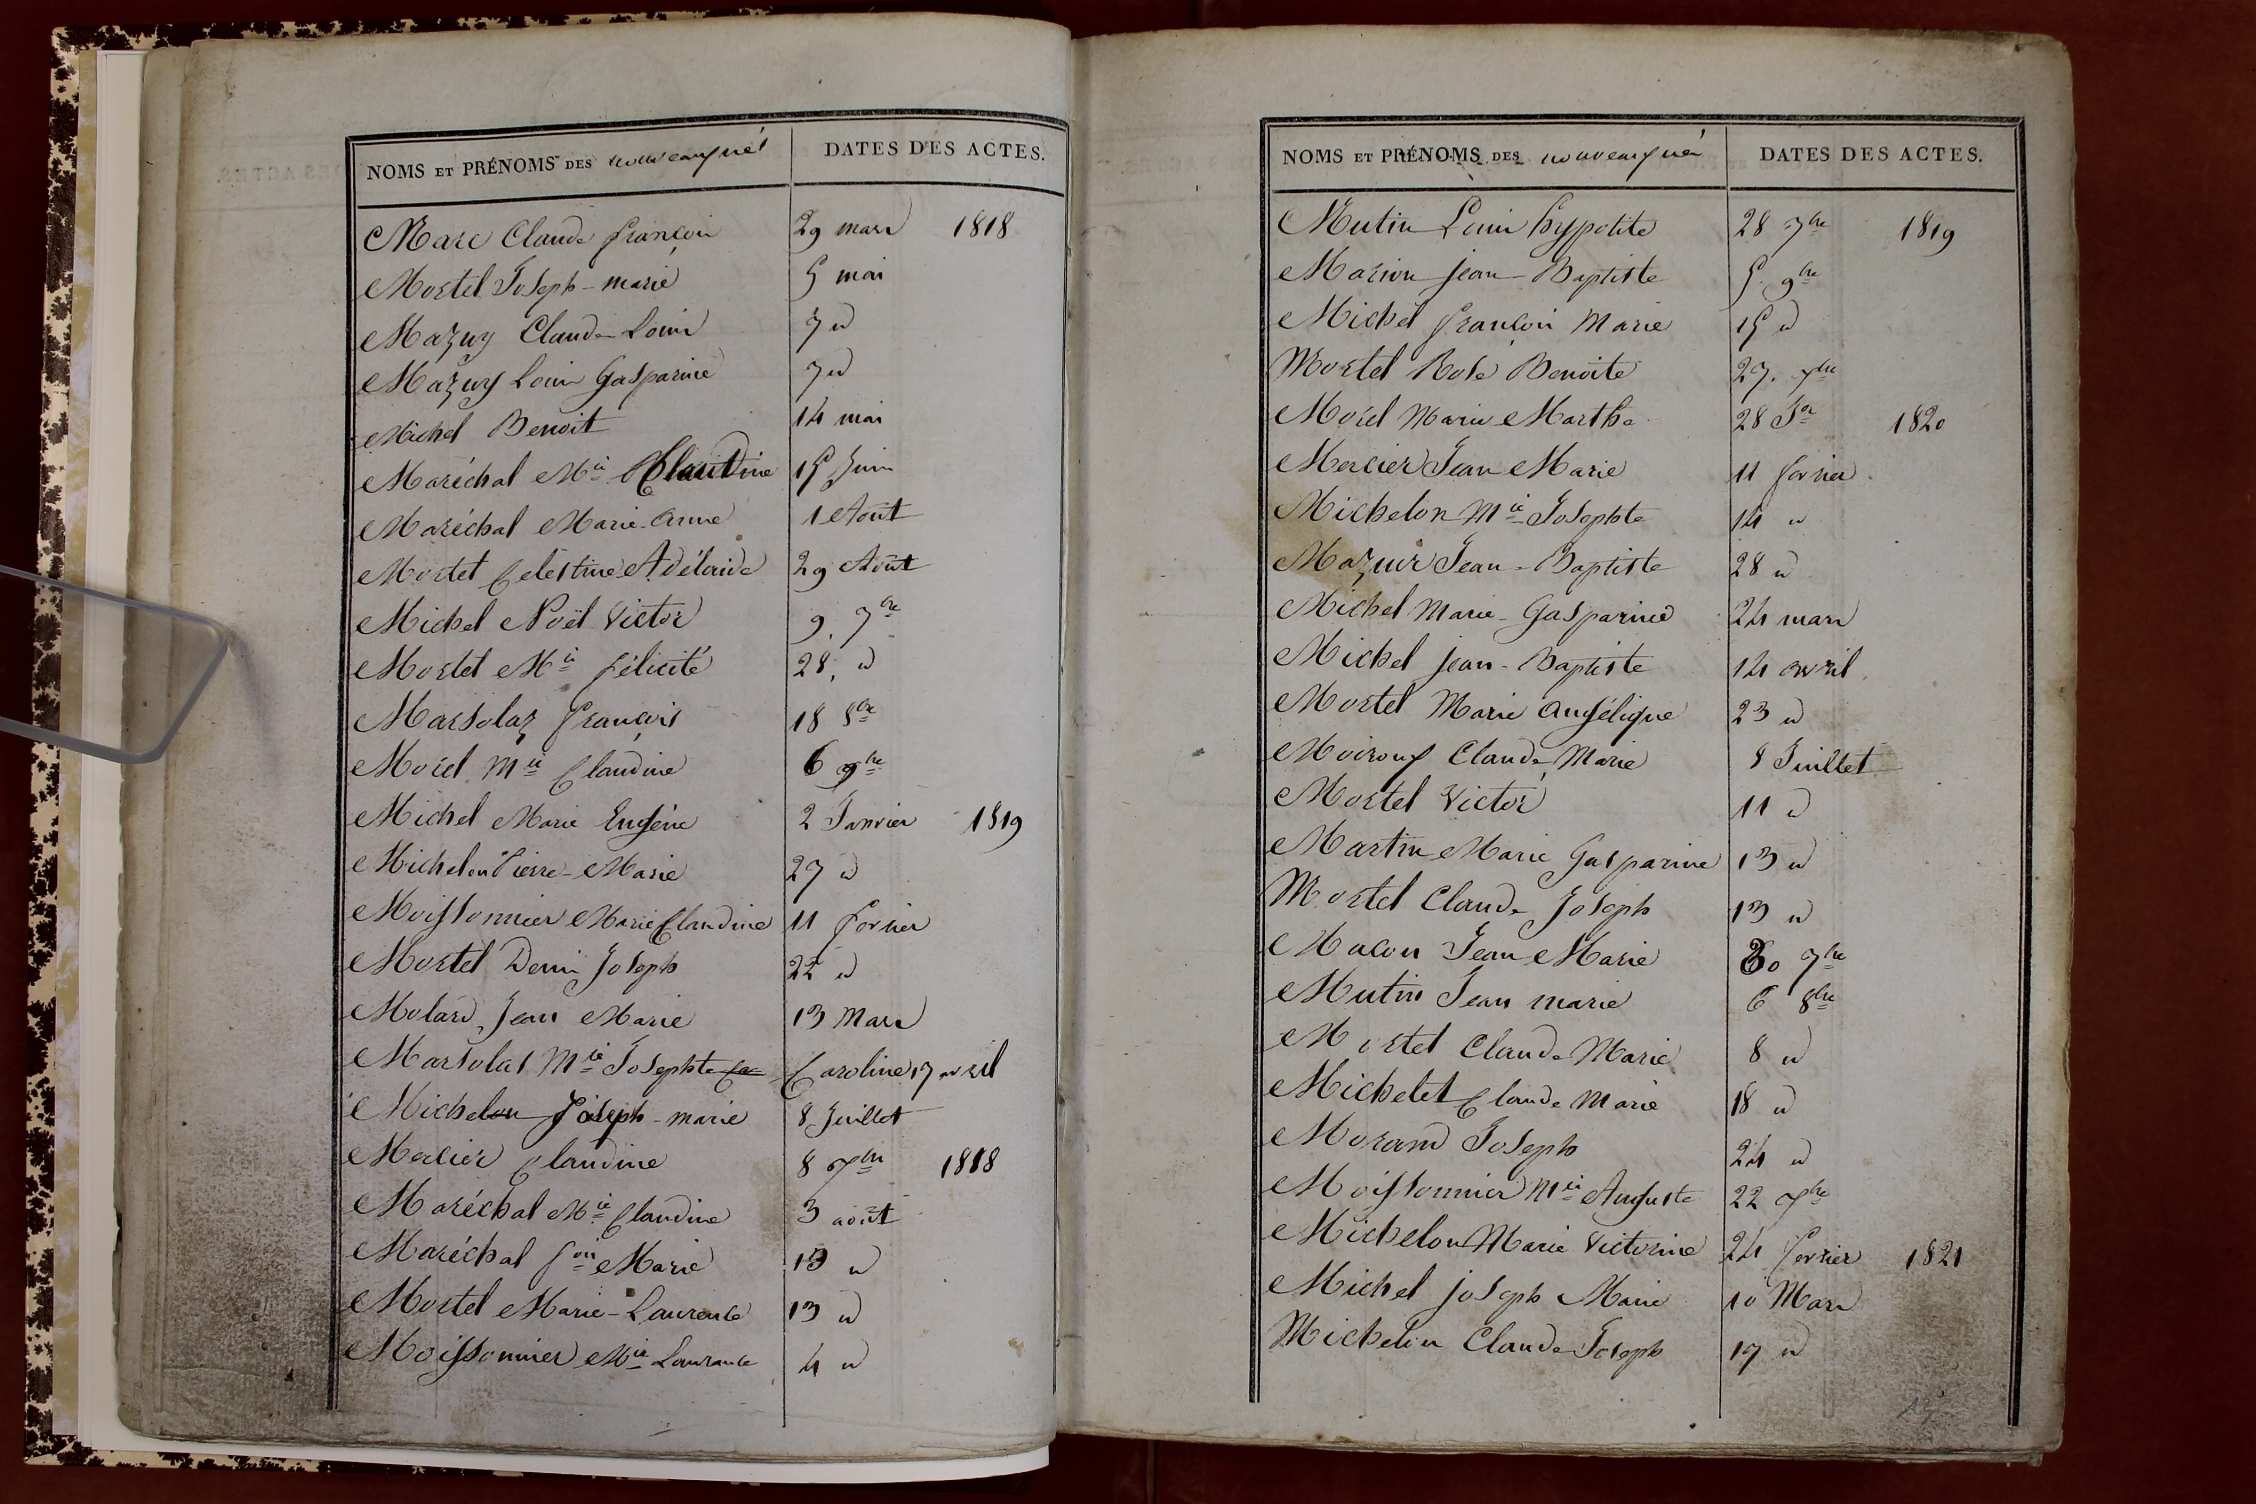 NOMS ET PRÉNOMS DES nouveaux nés DATES DES ACTES.
Marc Claude françois 29 mars 1818
Mortel Joseph-marie 5 mai
Mazuy Claude Louis 7 id
Mazuy Louis Gasparine 7 id
Michel Benoit 14 mai
Maréchal Mie Claudine 15 Juin
Maréchal Marie-anne 1 Août
Mortel Celestine Adélaide 29 Août
Michel Noël Victor 9. 7bre
Mortel Mie félicité 28. id
Marsolaz françois 18 8bre
Morel Mie Claudine 6 9bre
Michel Marie Eugénie 2 Janvier 1819
Michelon Pierre-Marie 27 id
Moissonnier Marie Claudine 11 fevrier
Mortel Denis Joseph 22 id
Molard Jean Marie 13 Mars
Marsolas Mie Josephte Caroline 17 avril
Michelon Joseph-marie 8 Juillet
Mercier Claudine 8 Xbre 1818
Maréchal Mie Claudine 3 août
Maréchal fois Marie 13 id
Mortel Marie-Laurence 13 id
Moissonnier Mie Laurance 4 id
NOMS ET PRÉNOMS DES nouveaux nés DATES DES ACTES.
Mutin Louis hyppolite 28 7bre 1819
Marion jean-Baptiste 5. 9bre
Michel françois Marie 15 id
Mortel Rose Benoite 27. Xbre
Morel Marie Marthe 28 Jer 1820
Mercier Jean Marie 11 fevrier
Michelon Mie Josephte 14 id
Mazuir Jean-Baptiste 28 id
Michel Marie-Gasparine 24 mars
Michel jean-Baptiste 14 avril
Mortel Marie angélique 23 id
Moiroux Claude Marie 8 Juillet
Mortel Victor 11 id
Martin Marie Gasparine 13 id
Mortel Claude Joseph 13 id
Macon Jean Marie 30 7bre
Mutin Jean marie 6 8bre
Mortel Claude Marie 8 id
Michelet Claude Marie 18 id
Morand Joseph 24 id
Moissonnier Mie Auguste 22 Xbre
Michelon Marie Victorine 24 fevrier 1821
Michel joseph Marie 10 Mars
Michelon Claude Joseph 17 id